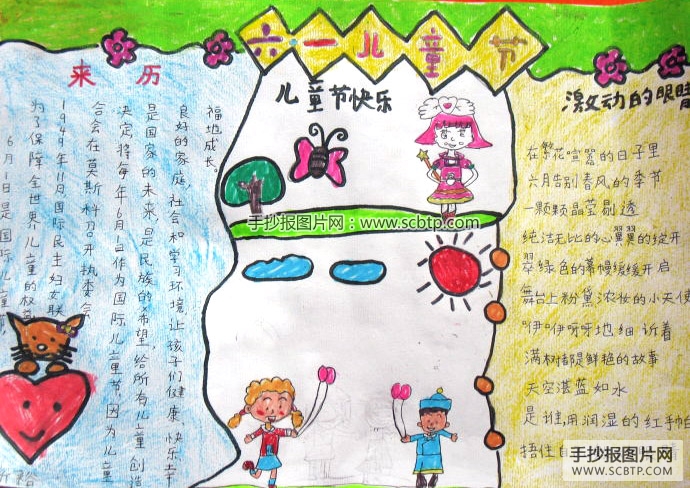 六·一儿童节
来历
6月1日是国际儿童
为了保障全世界儿童的权
1949年11月国际民主妇女联
合会在莫斯科召开执委会
决定将每年6月1日作为国际儿童节,因为儿童
是国家的未来,是民族的希望,给所有儿童创造
良好的家庭,社会和学习环境让孩子们健康、快乐、幸
福地成长。
儿童节快乐
激动的眼睛
在繁花喧嚣的日子里
六月告别春风的季节
一颗颗晶莹剔透
纯洁无比的心翼翼的绽开
翠绿色的幕幔缓缓开启
舞台上粉黛浓妆的小天使
"伊"伊呀呀地细诉着
满树都是鲜艳的故事
天空湛蓝如水
是谁,用润湿的红手帕
捂住
手抄报图片网:www.scbtp.com
手抄报图片网
WWW.SCBTP.COM